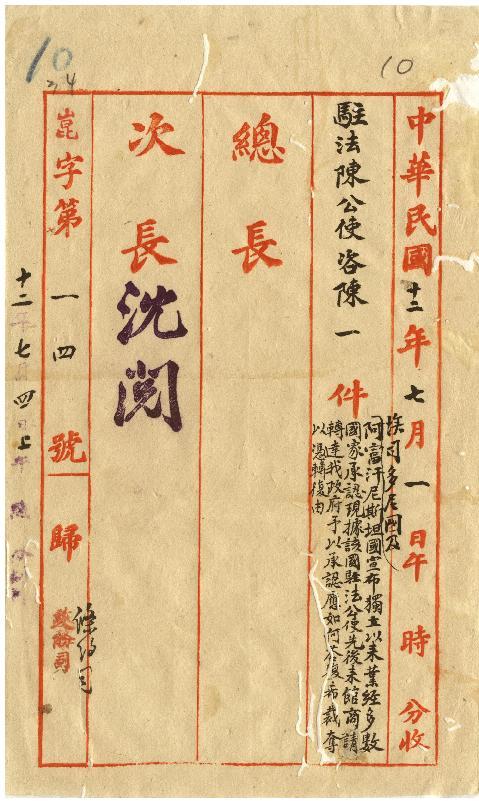 10
34
10
中華民國十二年七月一日午 時 分收
駐法陳公使咨陳一件
埃司多尼國及
阿富汗尼斯坦國宣布獨立以來業經多數
國家承認現據該國駐法公使先後來館商請
轉達我政府予以承認應如何答復希裁奪
以憑轉復由
總長
次長 沈閱
崑字第一四號歸
條約司
政務司
十二年七月四日上午